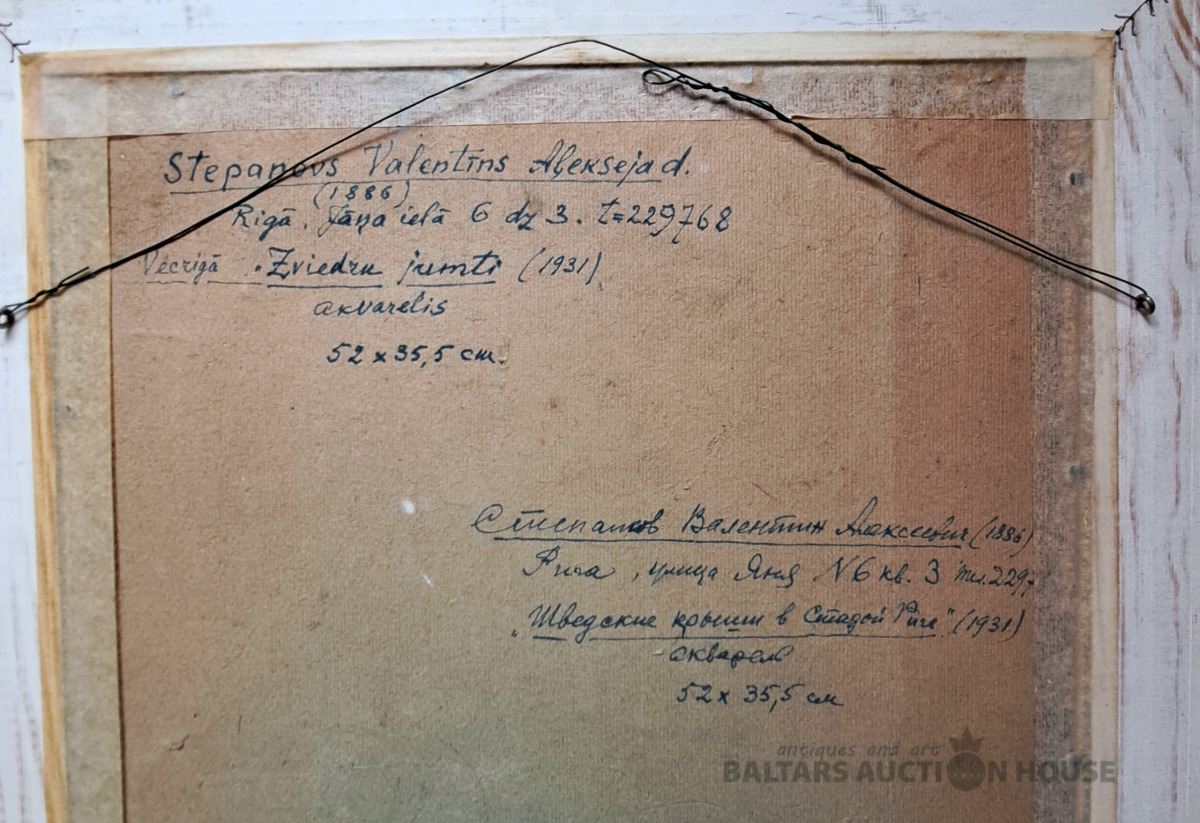 Stepanovs Valentīns Aļekseja d.
(1886)
Rīgā, Jāņa ielā 6 dz 3. t=229768
Vecrīgā "Zviedru jumti (1931)
akvarelis
52 x 35,5 cm.
Степанов Валентин Алексеевич (1886)
Рига, улица Яня N6 кв. 3 тел. 2297
"Шведские крыши в Старой Риге" (1931)
акварель
52 x 35,5 см
antiques and art
BALTARS AUCTION HOUSE